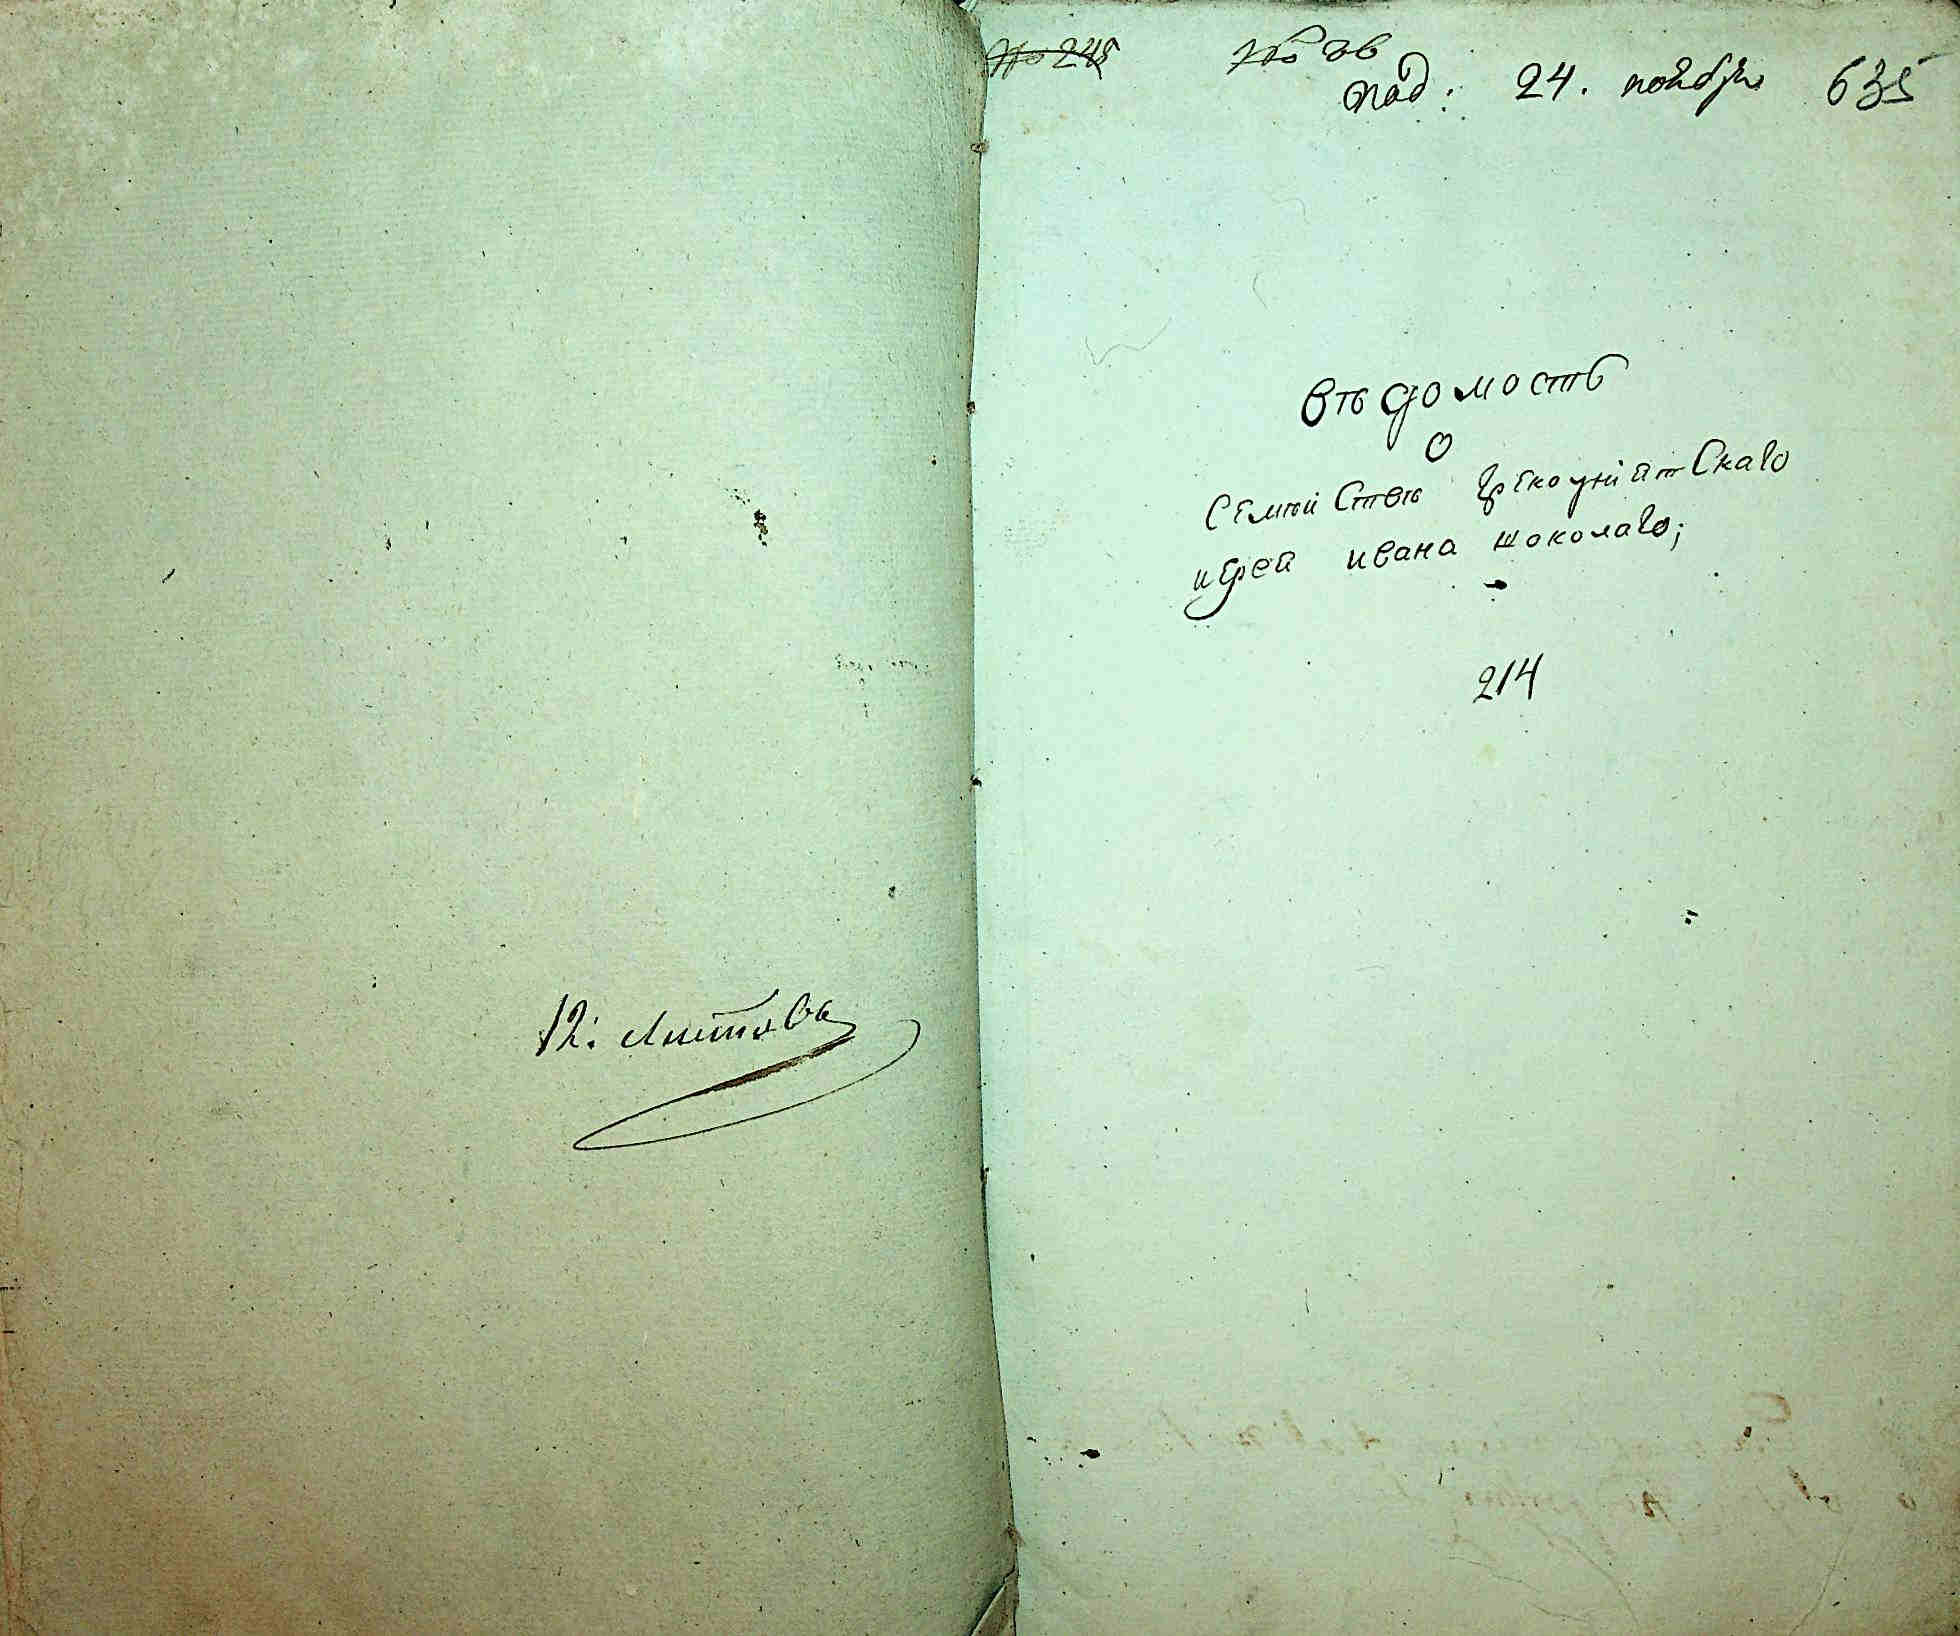 12: листовъ
№ 245
под: 24. ноября 635
Вѣдомость
о
семѣйствѣ грекоунитскаго
иерея ивана шоколаго;
214